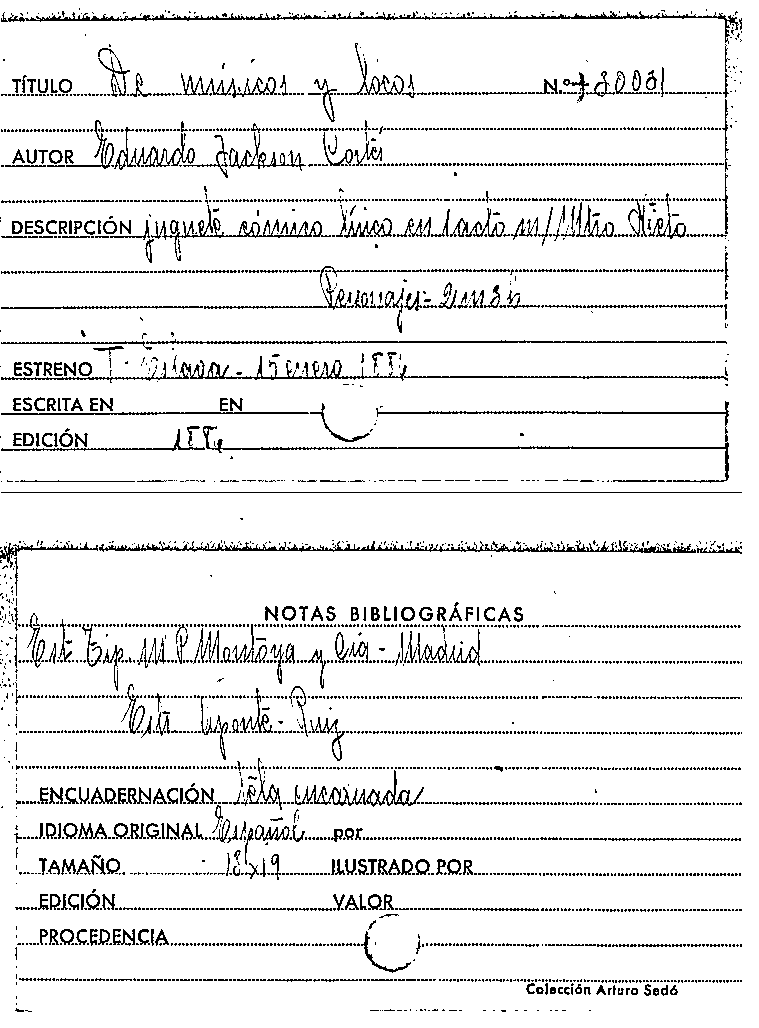 TÍTULO De músicos y locos N.º 30031
AUTOR Eduardo Jackson Cortés
DESCRIPCIÓN juguete cómico lírico en 1 acto m/ Mtro Nieto
Personajes- 2m 3h
ESTRENO T. Eslava - 15 enero 1884
ESCRITA EN EN
EDICIÓN 1884
NOTAS BIBLIOGRÁFICAS
Est Tip. M P Montoya y Cía - Madrid
Puig
ENCUADERNACIÓN tela encarnada
IDIOMA ORIGINAL Español por
TAMAÑO 13x19 ILUSTRADO POR
EDICIÓN VALOR
PROCEDENCIA
Colección Arturo Sedó